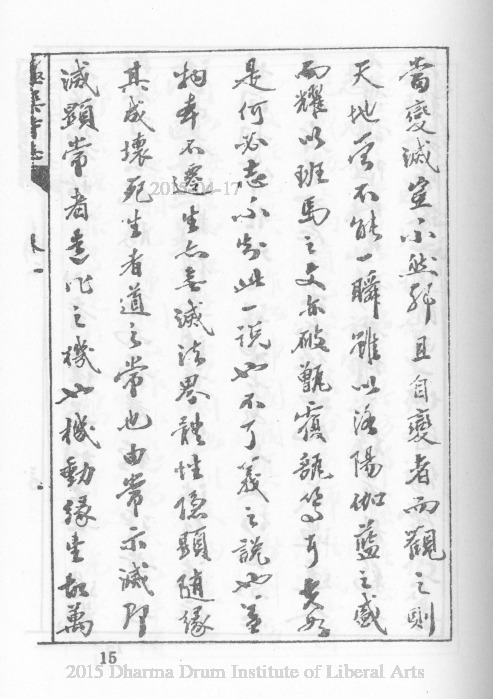 當變滅寧不然耶且自變者而觀之則
天地曾不能一瞬雖以洛陽伽藍之盛
而耀以班馬之文亦破甑
是何必志不知此一說也不了義之說也蓋
物本不遷生亦無滅法界體性隱顯隨緣
其成壞死生者道之常也由常示滅即
滅顯常者造化之機也機動緣生故萬
卷一
15
2015-04-17
2015 Dharma Drum Institute of Liberal Arts